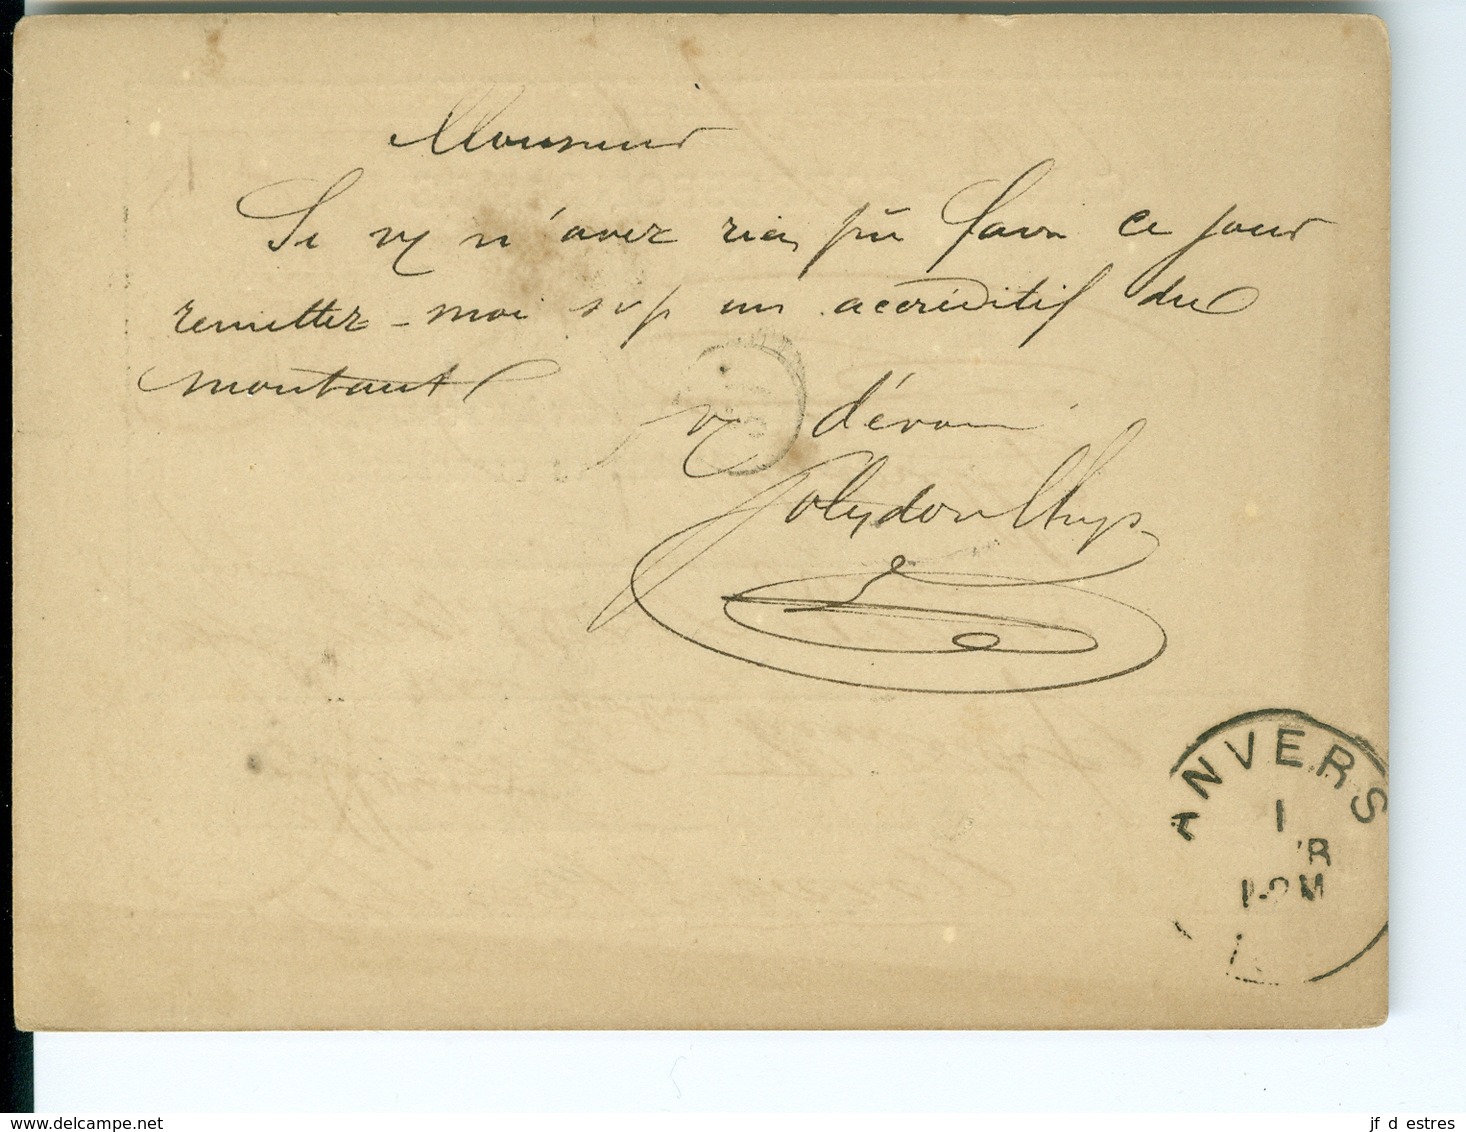 Monsieur
Si vs n'avez rien pu faire ce jour
remettez-moi svp un accréditif du
montant
vs dévoué
Polydore Thys
ANVERS
1
1-2M
delcampe.net
jf d estres